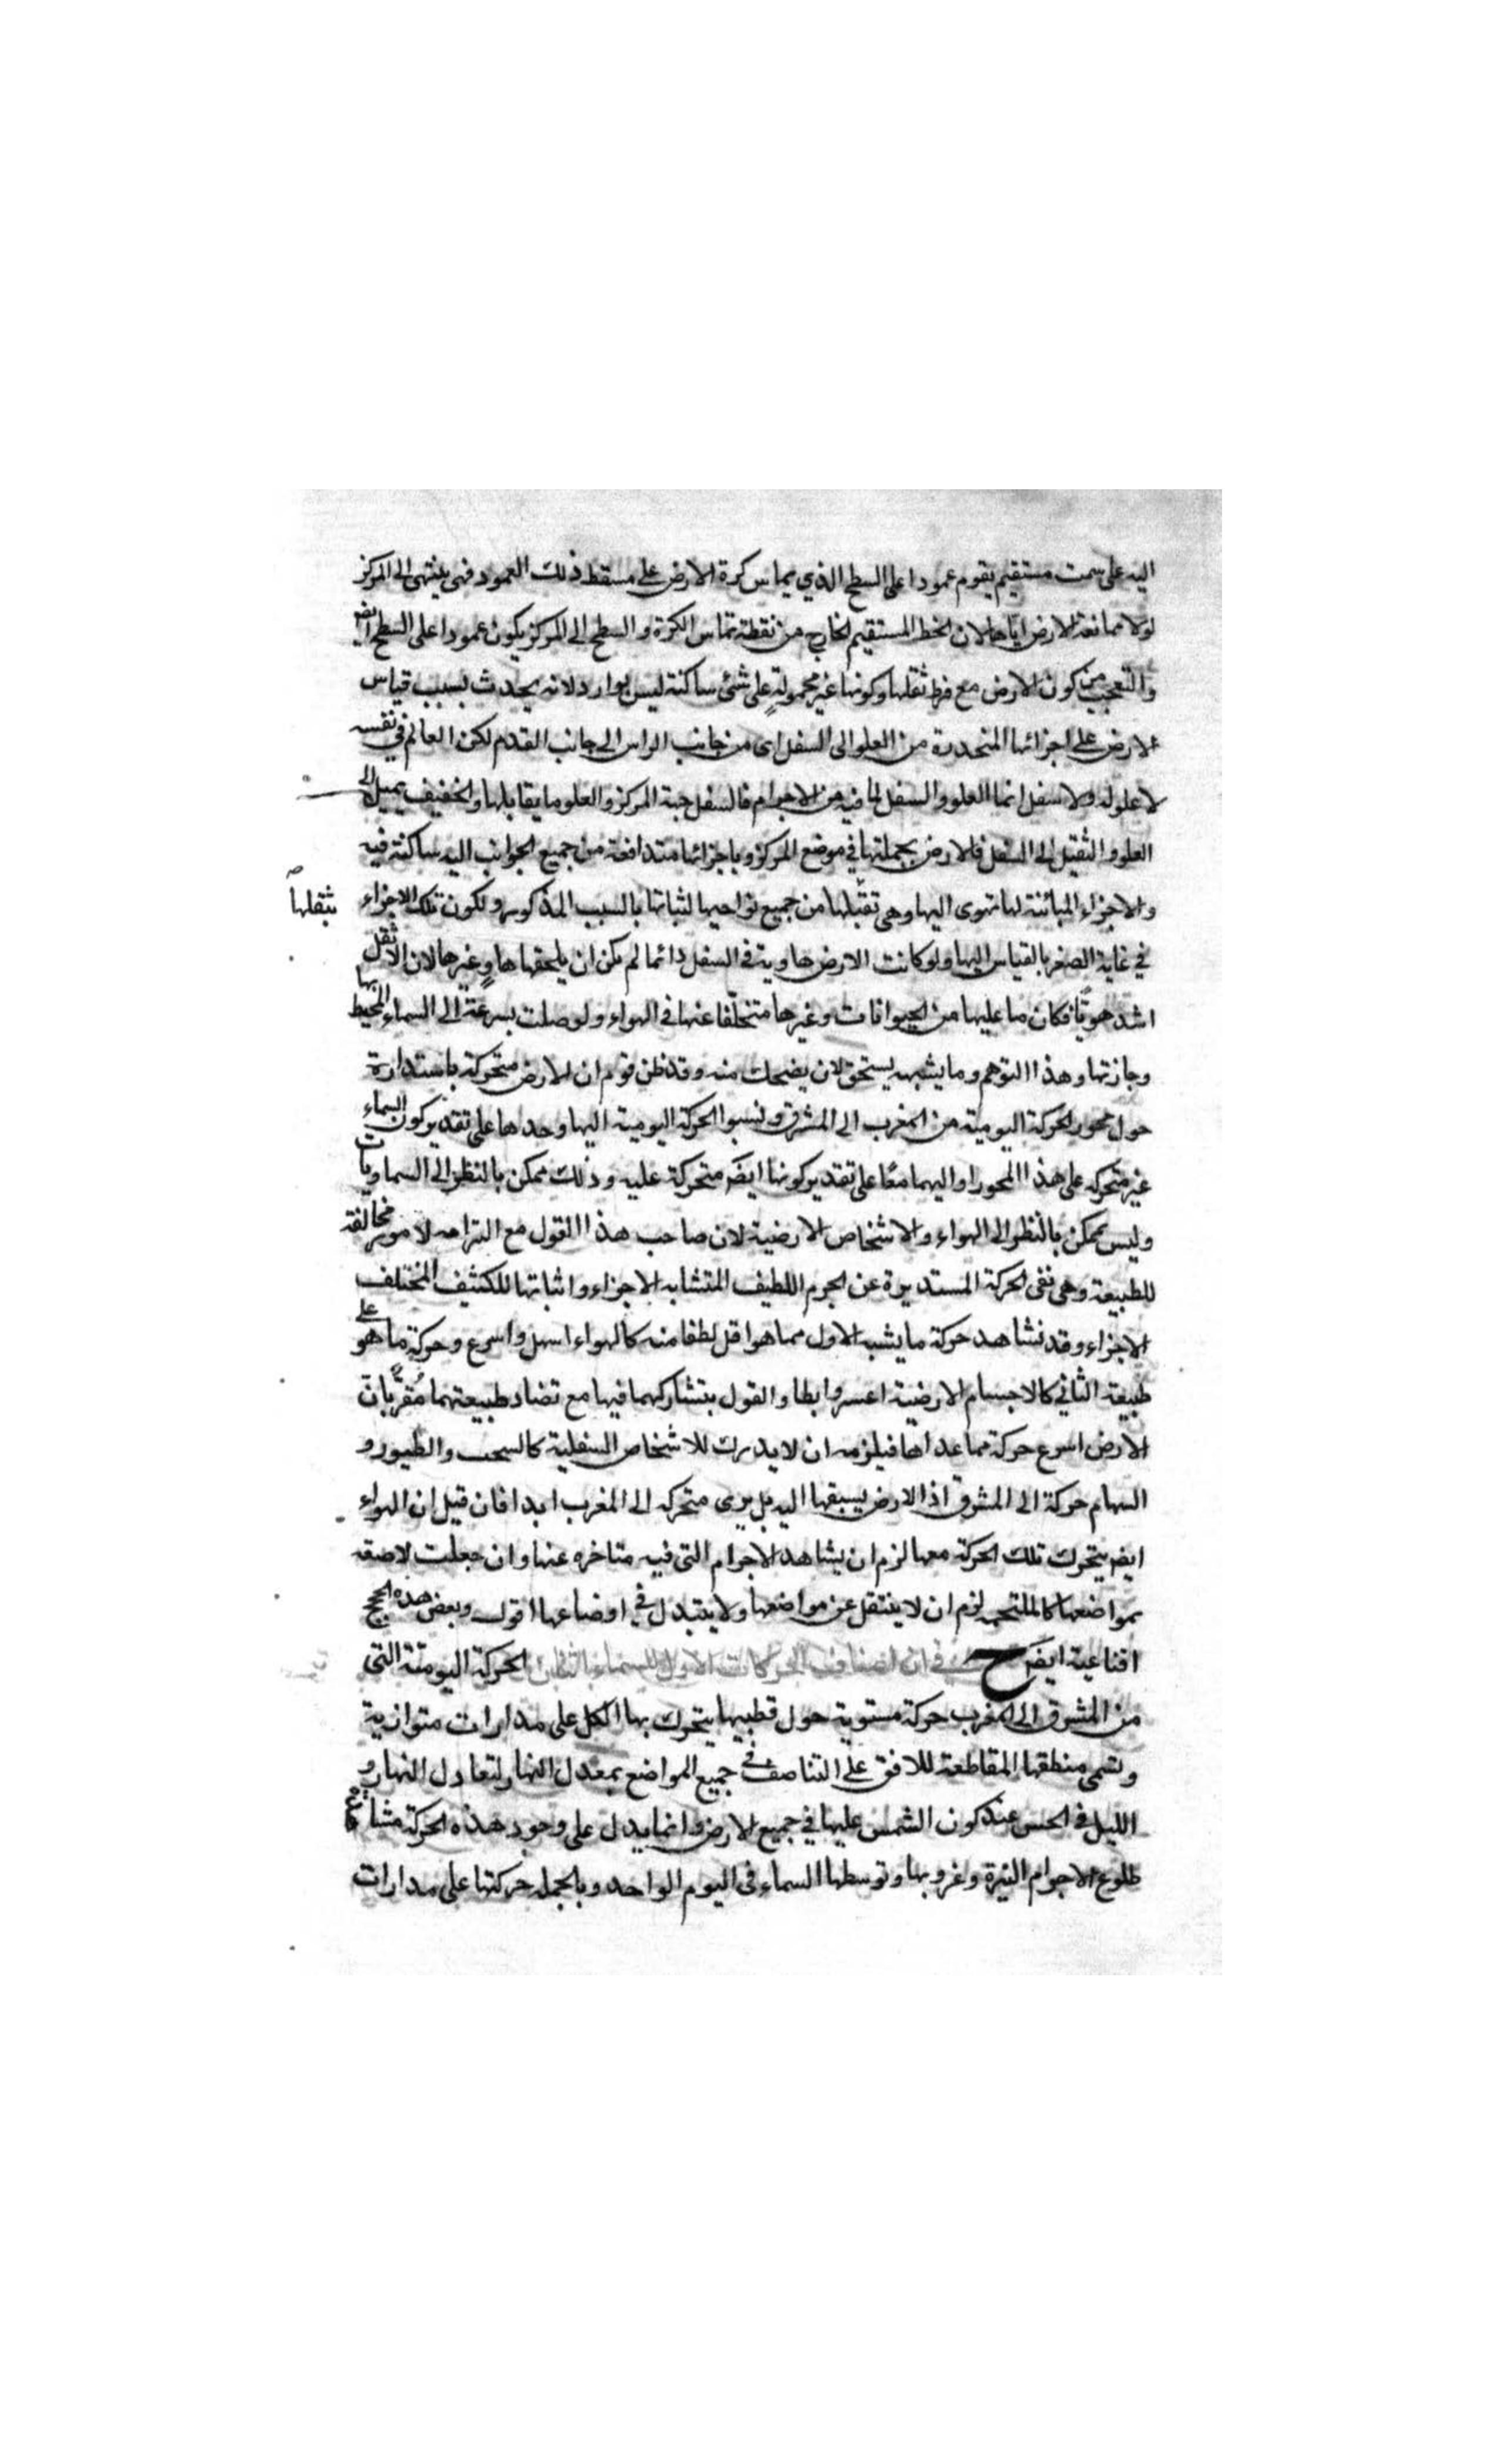 اليه على سمت مستقيم يقوم عمودا على السطح الذي يماس كرة الارض على مسقط ذلك العمود فهى ينتهى الى المركز
لولا ممانعة الارض اياها لان الخط المستقيم الخارج من نقطة تماس الكرة والسطح الى المركز يكون عمودا على السطح ايض
والتعجب من كون الارض مع فرط ثقلها وكونها غير محمولة على شئ ساكنة ليس بوارد لانه يحدث بسبب قياس
الارض على اجزائها المنحدرة من العلو الى السفل اى من جانب الراس الى جانب القدم لكن العالم فى نفسه
لا علو له ولا سفل انما العلو والسفل لما فيه من الاجرام فالسفل جهة المركز والعلو ما يقابلها والخفيف يميل الى
العلو والثقيل الى السفل فالارض بجملتها في موضع المركز وباجزائها متدافعة من جميع الجوانب اليه ساكنة فيه
والاجزاء المبائنة لها تهوى اليها وهى تقبلها من جميع نواحيها لثباتها بالسبب المذكور ولكون تلك الاجزاء
بثقلها
في غاية الصغر بالقياس اليها ولو كانت الارض هاوية فى السفل دائما لم يكن ان يلحقها هاو غيرها لان الاثقل
اشد هويا فكان ما عليها من الحيوانات وغيرها متخلفا عنها فى الهواء ولوصلت بسرعة الى السماء المحيط بها
وجازتها وهذا التوهم وما يشبهه يستحق لان يضحك منه وقد ظن قوم ان الارض متحركة باستدارة
حول محور الحركة اليومية من المغرب الى المشرق ونسبوا الحركة اليومية اليها وحدها على تقدير كون السماء
غير متحركه على هذا المحور او اليهما معا على تقدير كونها ايض متحركة عليه وذلك ممكن بالنظر الى السماويات
وليس بممكن بالنظر الى الهواء والاشخاص الارضية لان صاحب هذا القول مع التزامه لامور مخالفة
للطبيعة وهى نفى الحركة المستديرة عن الجرم اللطيف المتشابه الاجزاء واثباتها للكثيف المختلف
الاجزاء وقد نشاهد حركة ما يشبه الاول مما هو اقل لطفا منه كالهواء اسهل واسرع وحركة ما هو على
طبيعة الثاني كالاجسام الارضية اعسر وابطا والقول بتشاركهما فيها مع تضاد طبيعتهما مقر بان
الارض اسرع حركة مما عداها فيلزمه ان لا يدرك للاشخاص السفلية كالسحب والطيور و
السهام حركة الى المشرق اذ الارض يسبقها اليه بل يرى متحركه الى المغرب ابدا فان قيل ان الهواء
ايض يتحرك تلك الحركة معها لزم ان يشاهد الاجرام التى فيه متاخره عنها وان جعلت لاصقه
بمواضعها كالملتحمه لزم ان لا ينتقل عن مواضعها ولا يتبدل في اوضاعها اقول وبعض هذه الحجج
اقناعية ايض ح في ان اصناف الحركات الاول للسماء الحركة اليومية التى
من المشرق الى المغرب حركة مستوية حول قطبيها يتحرك بها الكل على مدارات متوازية
وتسمى منطقتها المقاطعة للافق على التناصف فى جميع المواضع بمعدل النهار لتعادل النهار و
الليل فى الحس عند كون الشمس عليها في جميع الارض وانما يدل على وجود هذه الحركة
طلوع الاجرام النيرة وغروبها وتوسطها السماء فى اليوم الواحد وبالجمله حركتها على مدارات